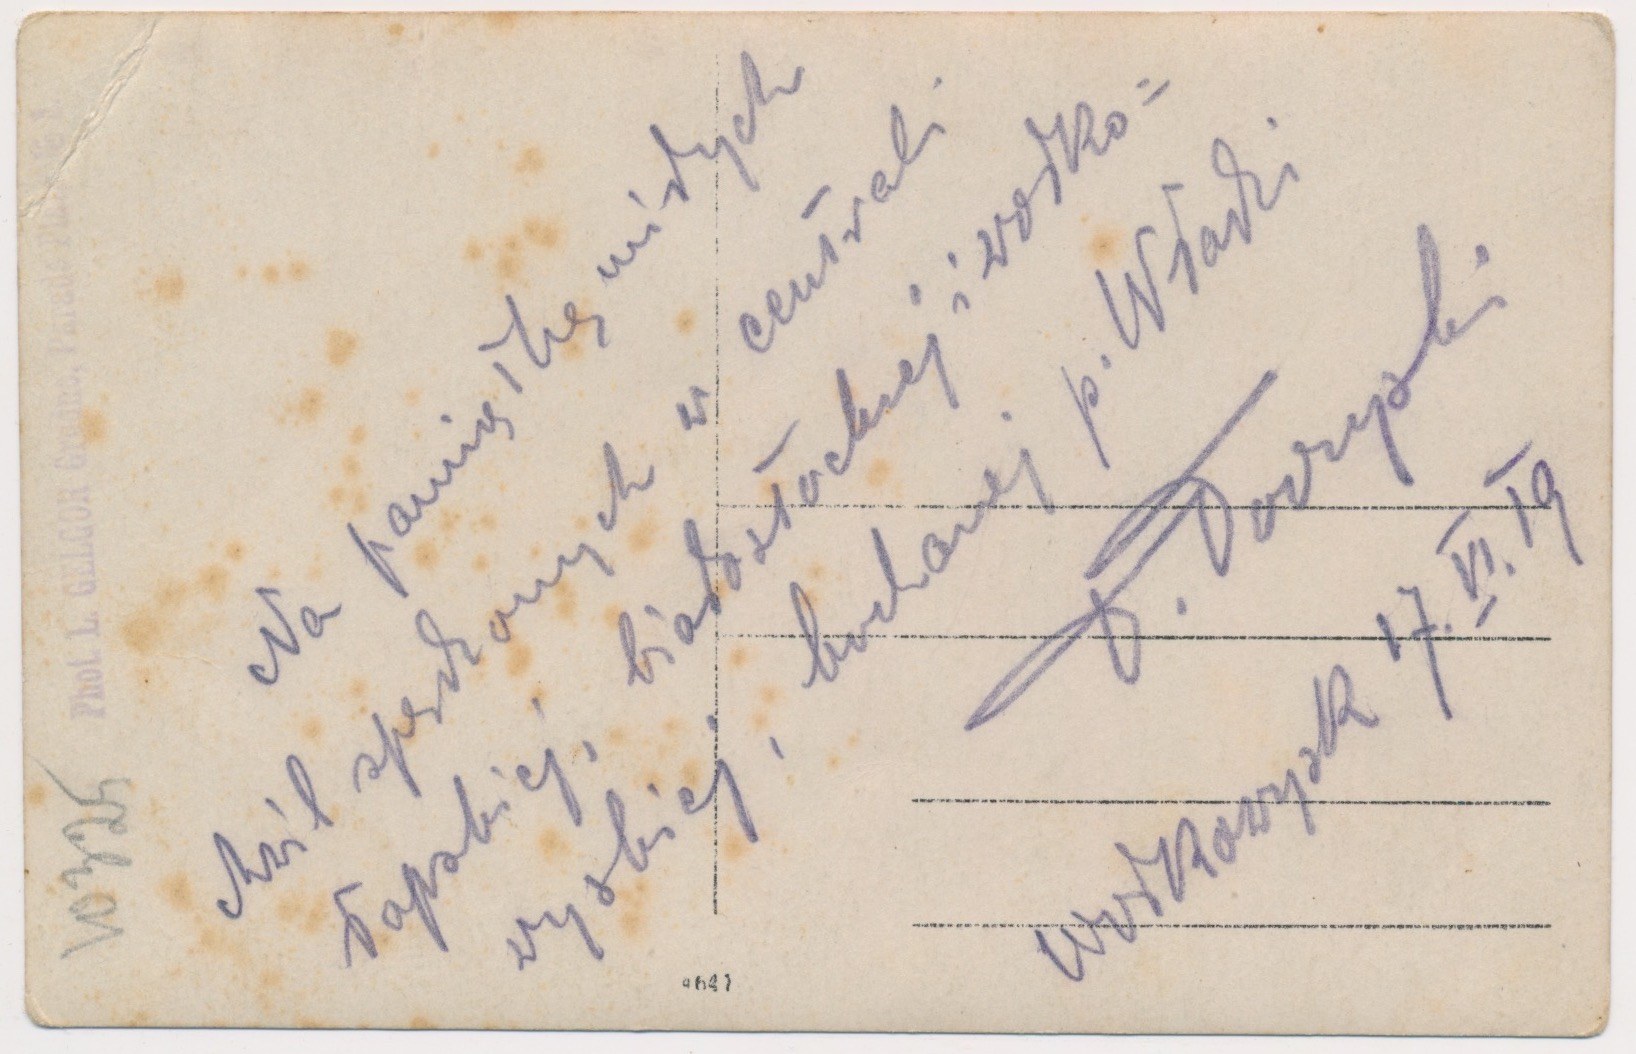 Na pamiątkę miłych
chwil spędzonych w centrali
łapskiej, białostockiej i wołko=
wyskiej, kochanej p. Władzi
Wołkowysk 17.VI.19
Phot. L. GELGOR Grodno,
10325